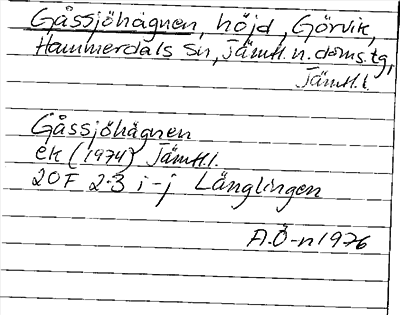 Gåssjöhägnen, höjd, Görvik,
Hammerdals sn, Jämtl. n. doms.tg,
Jämtl. l.
Gåssjöhägnen
ek (1974) Jämtl.l.
20F 2-3 i-j Länglingen
A.Ö-n 1976